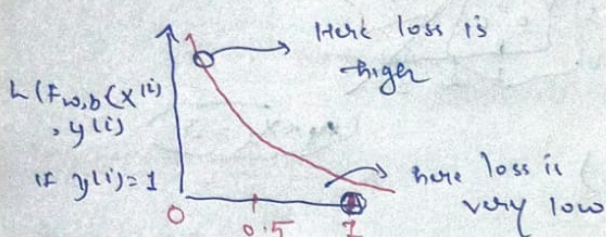 Here loss is
higer
L(Fw,b(x(i)
, y(i)
if y(i)=1
here loss is
very low
0 0.5 1